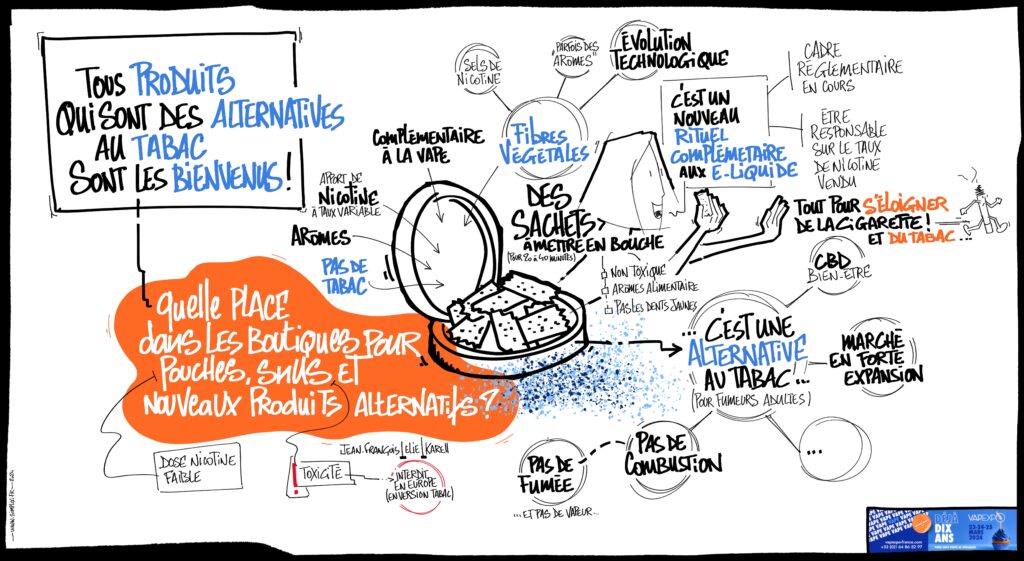 TOUS PRODUITS
QUI SONT DES ALTERNATIVES
AU TABAC
SONT LES BIENVENUS !
SELS DE
NICOTINE
"PARFOIS DES
ARÔMES"
ÉVOLUTION
TECHNOLOGIQUE
FIBRES
VÉGÉTALES
COMPLÉMENTAIRE
À LA VAPE
APPORT DE
NICOTINE
À TAUX VARIABLE
ARÔMES
PAS DE
TABAC
DES
SACHETS
À METTRE EN BOUCHE
(POUR 20 à 40 MINUTES)
C'EST UN
NOUVEAU
RITUEL
COMPLÉMETAIRE
AUX E-LIQUIDE
CADRE
RÉGLEMENTAIRE
EN COURS
ÊTRE
RESPONSABLE
SUR LE TAUX
DE NICOTINE
VENDU
TOUT POUR S'ÉLOIGNER
DE LA CIGARETTE !
ET DU TABAC...
NON TOXIQUE
ARÔMES ALIMENTAIRE
PAS LES DENTS JAUNES
QUELLE PLACE
DANS LES BOUTIQUES POUR
POUCHES, SNUS ET
NOUVEAUX PRODUITS ALTERNATIFS ?
DOSE NICOTINE
FAIBLE
! TOXICITÉ
JEAN-FRANÇOIS | ELIE | KARELL
INTERDIT
EN EUROPE
(EN VERSION TABAC)
CBD
BIEN-ETRE
... C'EST UNE
ALTERNATIVE
AU TABAC...
(POUR FUMEURS ADULTES)
MARCHÉ
EN FORTE
EXPANSION
...
PAS DE
COMBUSTION
PAS DE
FUMÉE
...ET PAS DE VAPEUR...
DÉJÀ
DIX
ANS
VAPEXPO
23-24-25
MARS
2024
vapexpo-france.com